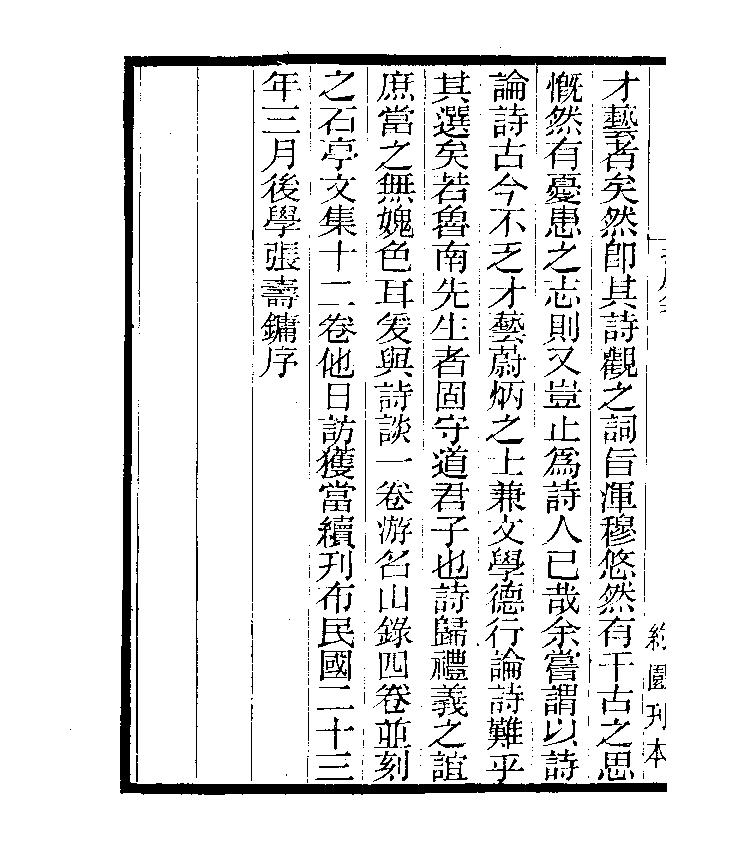 才藝者矣然卽其詩觀之詞旨渾穆悠然有千古之思
慨然有憂患之志則又豈止爲詩人已哉余嘗謂以詩
論詩古今不乏才藝蔚炳之士兼文學德行論詩難乎
其選矣若魯南先生者固守道君子也詩歸禮義之誼
庶當之無媿色耳爰與詩談一卷游名山錄四卷並刻
之石亭文集十二卷他日訪獲當續刋布民國二十三
年三月後學張壽鏞序
約園刋本